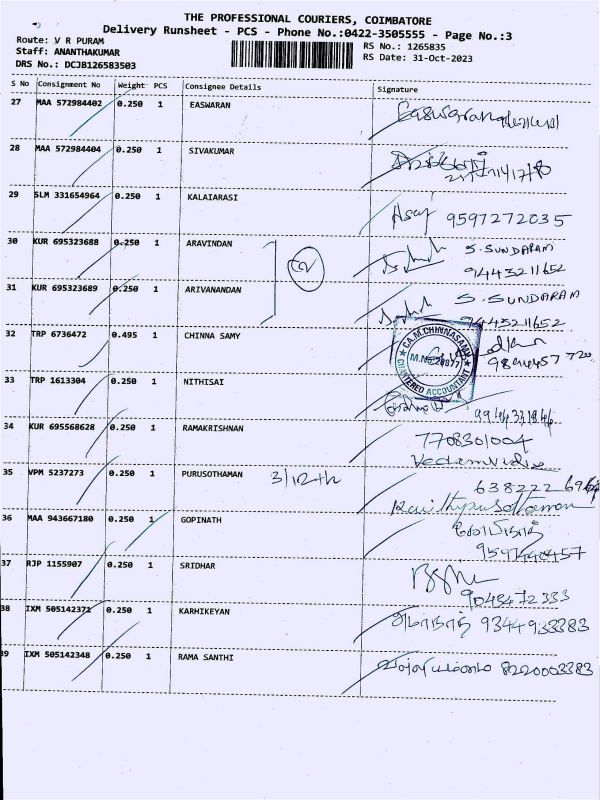 THE PROFESSIONAL COURIERS, COIMBATORE
Delivery Runsheet - PCS - Phone No.:0422-3505555 - Page No.:3
Route: V R PURAM
RS No.: 1265835
Staff: ANANTHAKUMAR
RS Date: 31-Oct-2023
DRS No.: DCJB126583503
S No Consignment No Weight PCS Consignee Details Signature
27 MAA 572984402 0.250 1 EASWARAN
28 MAA 572984404 0.250 1 SIVAKUMAR
29 SLM 331654964 0.250 1 KALAIARASI 9597272035
30 KUR 695323688 0.250 1 ARAVINDAN S. SUNDARAM
9443211652
31 KUR 695323689 0.250 1 ARIVANANDAN S. SUNDARAM
9443211652
32 TRP 6736472 0.495 1 CHINNA SAMY
CA. M. CHINNASAMY
M.No.
CHARTERED ACCOUNTANT
33 TRP 1613304 0.250 1 NITHISAI
34 KUR 695568628 0.250 1 RAMAKRISHNAN 7708301004
35 VPM 5237273 0.250 1 PURUSOTHAMAN 3/12th
36 MAA 943667180 0.250 1 GOPINATH
37 RJP 1155907 0.250 1 SRIDHAR
38 IXM 505142371 0.250 1 KARHIKEYAN 9344933383
39 IXM 505142348 0.250 1 RAMA SANTHI 8220003383